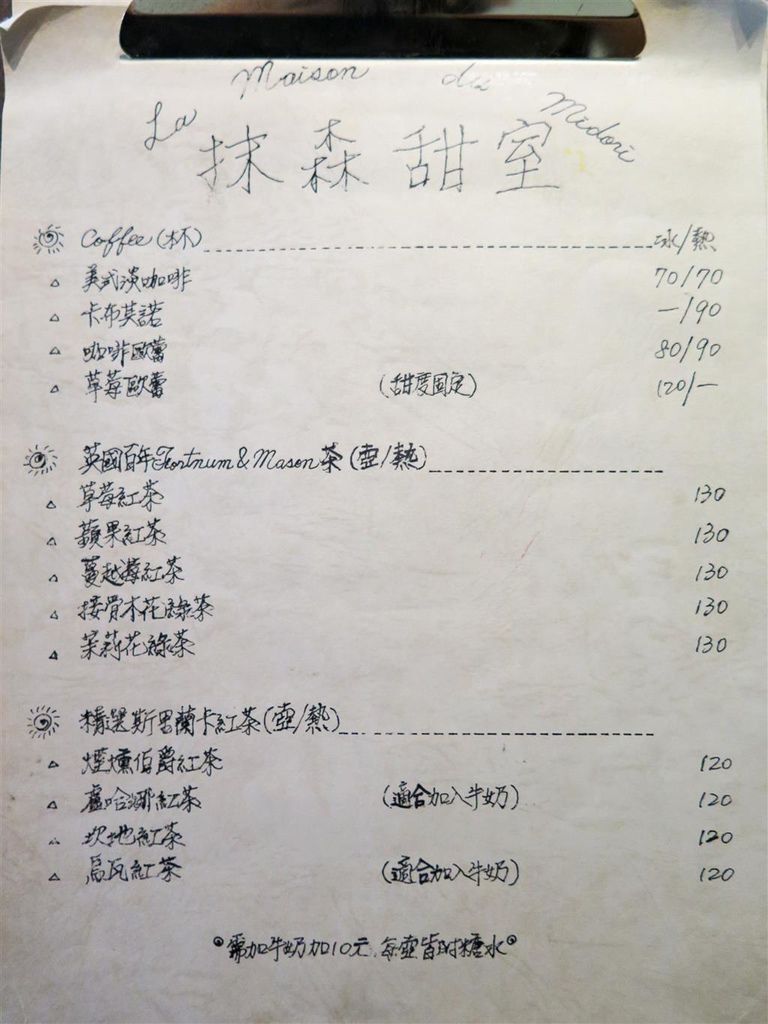 La Maison du Midori
抹森甜室
Coffee(杯) 冰/熱
美式淡咖啡 70/70
卡布其諾 —/90
咖啡歐蕾 80/90
草莓歐蕾 (甜度固定) 120/—
英國百年Fortnum & Mason茶(壺/熱)
草莓紅茶 130
蘋果紅茶 130
蔓越莓紅茶 130
接骨木花綠茶 130
茉莉花綠茶 130
精選斯里蘭卡紅茶(壺/熱)
煙燻伯爵紅茶 120
盧哈娜紅茶 (適合加入牛奶) 120
坎地紅茶 120
烏瓦紅茶 (適合加入牛奶) 120
需加牛奶加10元,每壺皆附糖水